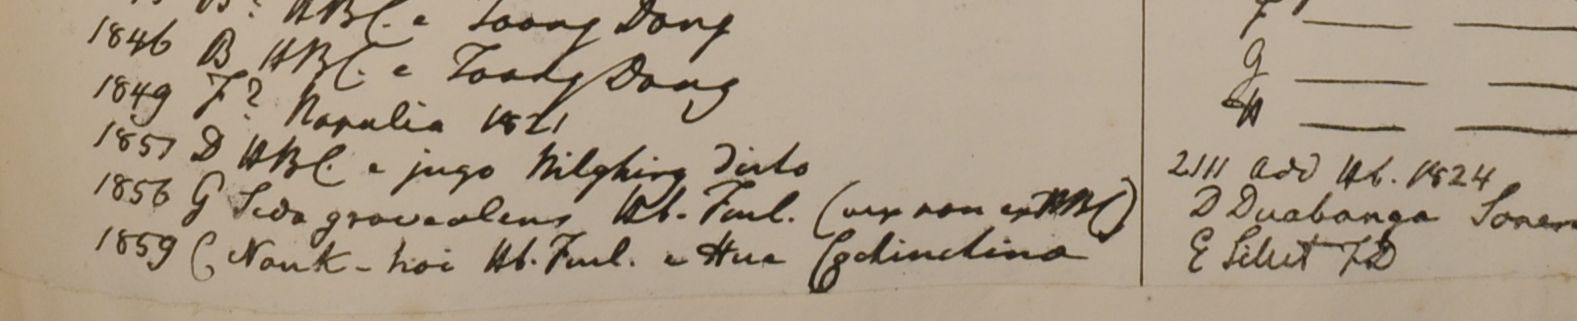 B? HBC. e Toong Dong
1846 B HBC. e Toong Dong
1849 F? Napalia 1821
1851 D HBC. e jugo Nilghiry dicto
1856 G Sida graveolens Hb. Finl. (vix non ex HBC)
1859 C Nauk-hoi Hb. Finl. e Hue Cochinchina
F
G
H
2111 add Hb. 1824
D Duabanga
E Silet FD